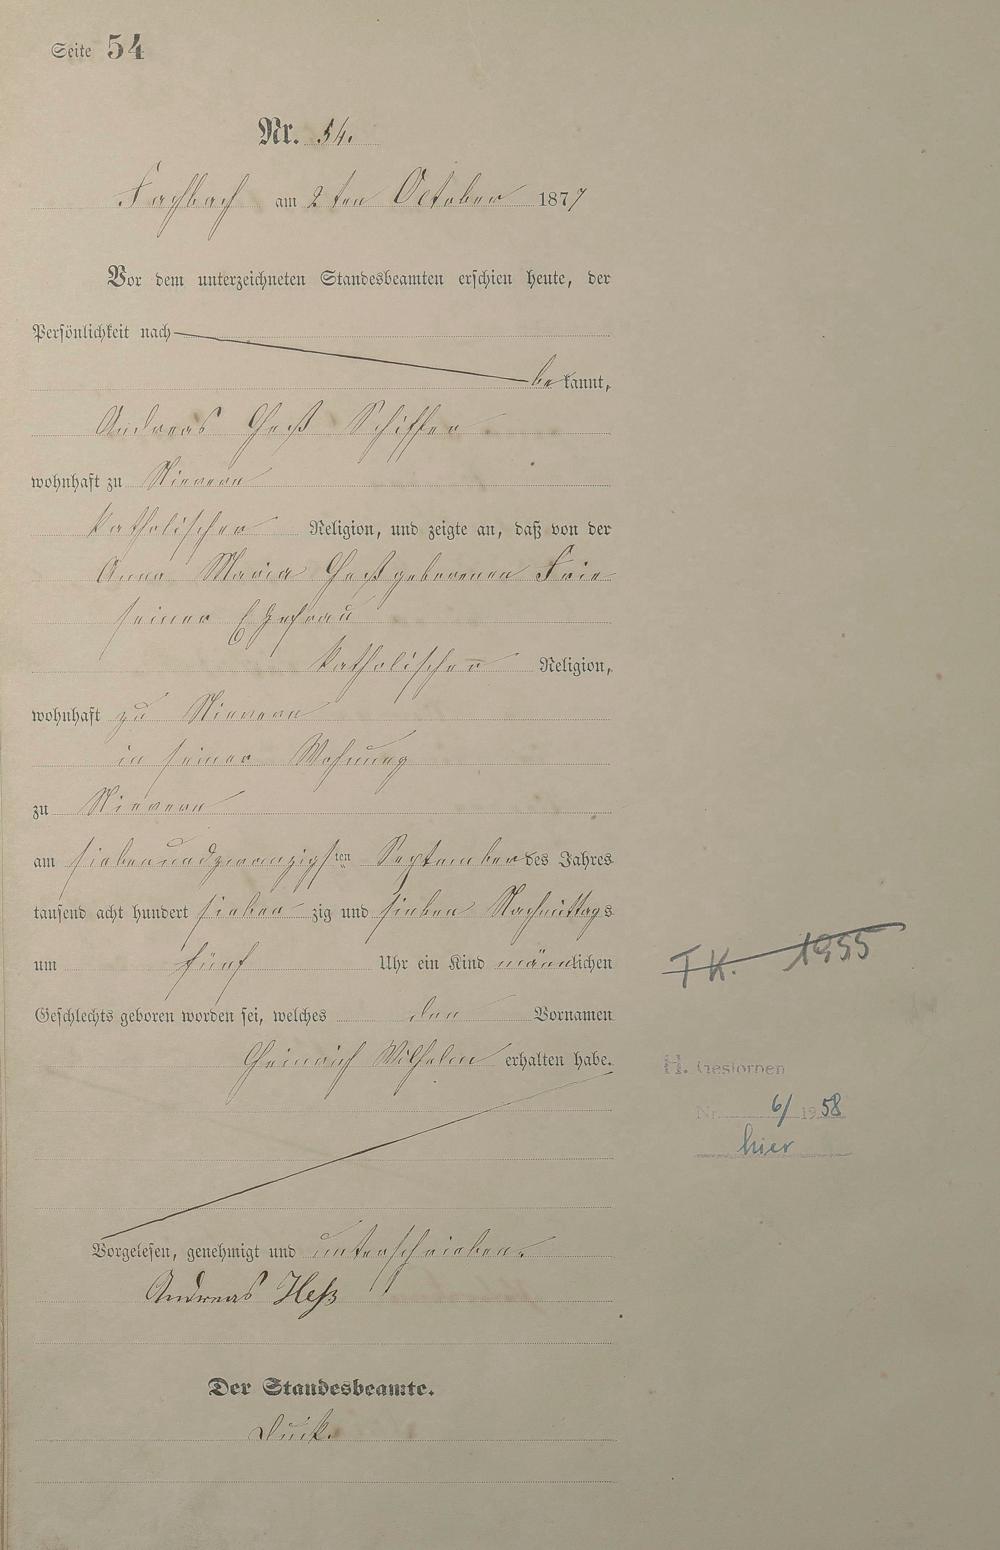 Seite 54
Nr. 54.
Fachbach am 2ten October 1877
Vor dem unterzeichneten Standesbeamten erschien heute, der
Persönlichkeit nach
bekannt,
Andreas Heß Schiffer
wohnhaft zu Nievern
katholischer Religion, und zeigte an, daß von der
Anna Maria Heß geborenen
seiner Ehefrau
katholischer Religion,
wohnhaft zu Nievern
in seiner Wohnung
zu Nievern
am siebenundzwanzigsten September des Jahres
tausend acht hundert siebenzig und sieben Nachmittags
um fünf Uhr ein Kind männlichen
Geschlechts geboren worden sei, welches den Vornamen
Heinrich Wilhelm erhalten habe.
T K. 1955
H. Gestorben
Nr. 6/1958
hier
Vorgelesen, genehmigt und unterschrieben.
Andreas Heß
Der Standesbeamte.